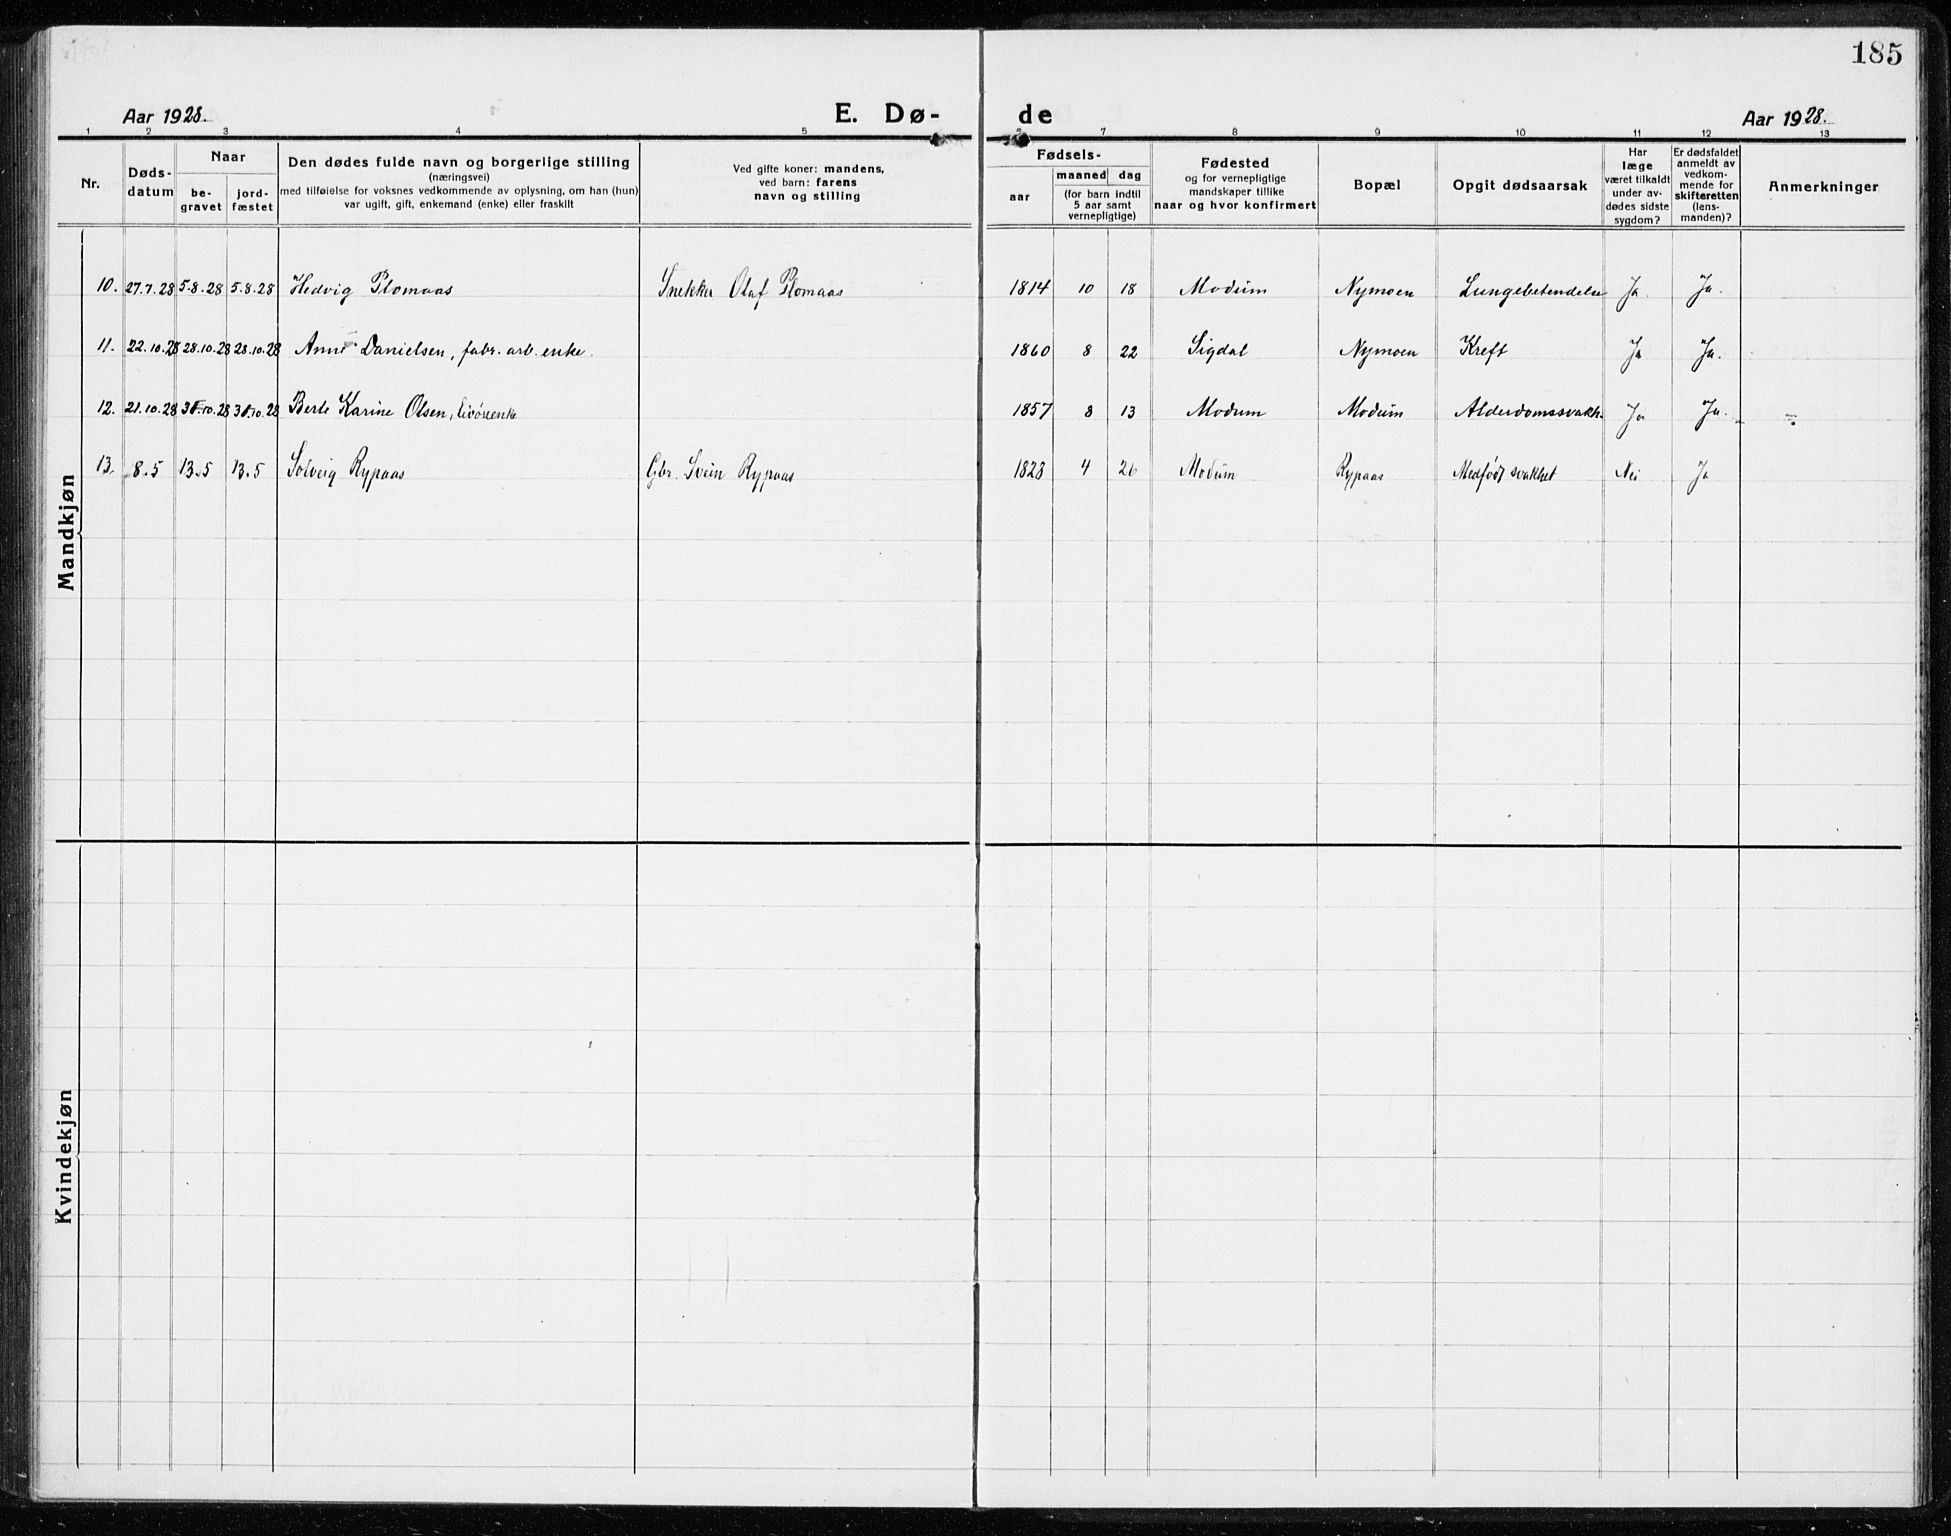 185
Aar 1928.
E. Dø-
de
Aar 1928.
1 2 3 4 5 6 7 8 9 10 11 12 13
Nr.
Døds-
datum
Naar
be-
gravet
jord-
fæstet
Den dødes fulde navn og borgerlige stilling
(næringsvei)
med tilføielse for voksnes vedkommende av oplysning, om han (hun)
var ugift, gift, enkemand (enke) eller fraskilt
Ved gifte koner: mandens,
ved barn: farens
navn og stilling
Fødsels-
aar
maaned dag
(for barn indtil
5 aar samt
vernepligtige)
Fødested
og for vernepligtige
mandskaper tillike
naar og hvor konfirmert
Bopæl
Opgit dødsaarsak
Har
læge
været tilkaldt
under av-
dødes sidste
sygdom?
Er dødsfaldet
anmeldt av
vedkom-
mende for
skifteretten
(lens-
manden)?
Anmerkninger
Mandkjøn
10. 27.7.28 5.8.28 5.8.28 Hedvig Plomaas Snekker Olaf Plomaas 1814 10 18 Modum Nymoen Lungebetendelse Ja. Ja.
11. 22.10.28 28.10.28 28.10.28 Anne Danielsen, fabr. arb. enke. 1860 8 22 Sigdal Nymoen Kreft Ja Ja.
12. 21.10.28 31.10.28 31.10.28 Berte Karine Olsen, 1857 8 13 Modum Modum Alderdomssvakh. Ja Ja.
13. 8.5 13.5 13.5 Solveig Rypaas Gbr. Svein Rypaas 1828 4 26 Modum Rypaas Medfødt svakhet Nei Ja
Kvindekjøn